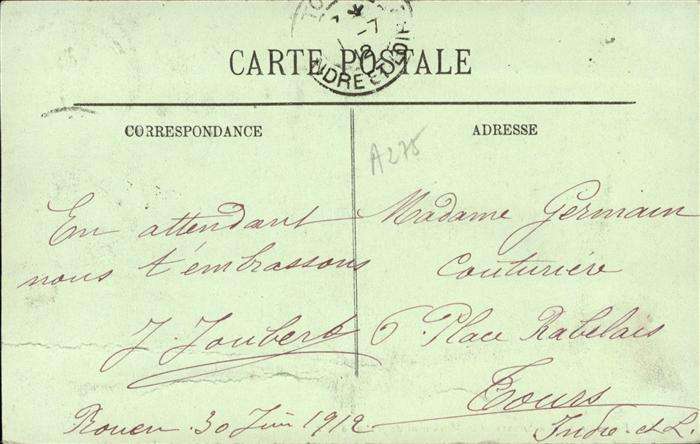 CARTE POSTALE
INDRE ET LOIRE
CORRESPONDANCE
En attendant
nous t'embrassons
J. Joubert
Rouen 30 Juin 1912
ADRESSE
A275
Madame Germain
Couturière
6 Place Rabelais
Tours
Indre-et-L.